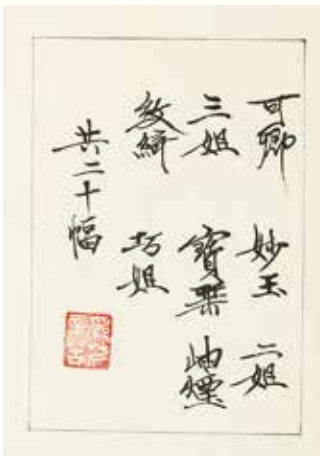 可卿 妙玉 二姐
三姐 寶琹 岫煙
紋綺 巧姐
共二十幅